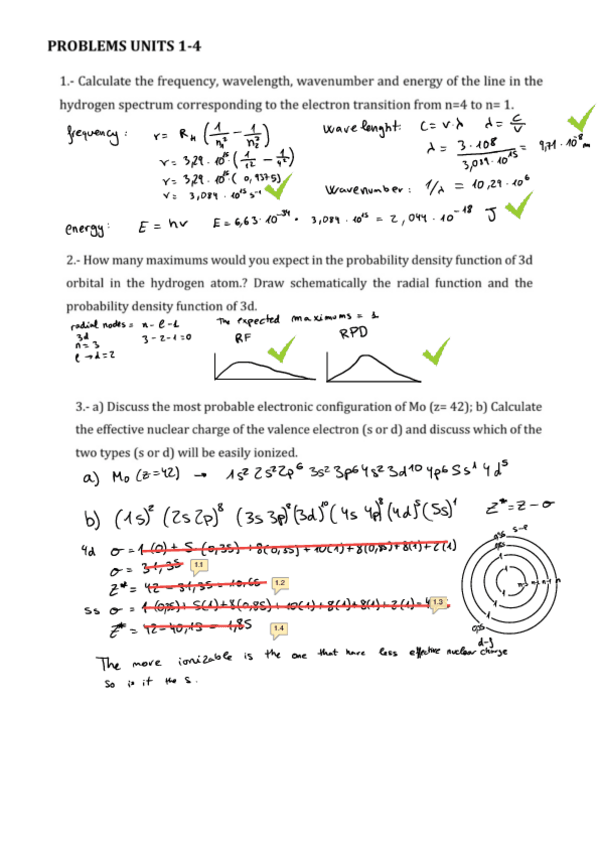 PROBLEMS UNITS 1-4
1.- Calculate the frequency, wavelength, wavenumber and energy of the line in the
hydrogen spectrum corresponding to the electron transition from n=4 to n= 1.
frequency: ν = R_H (1/n₁² − 1/n₂²)
ν = 3,29 · 10¹⁵ (1/1² − 1/4²)
ν = 3,29 · 10¹⁵ (0,9375)
ν = 3,084 · 10¹⁵ s⁻¹
Wavelenght: C = ν·λ λ = C/ν
λ = 3·10⁸ / 3,084·10¹⁵ = 9,71·10⁻⁸ m
Wavenumber: 1/λ = 10,29·10⁶
energy: E = hν E = 6,63·10⁻³⁴ · 3,084·10¹⁵ = 2,044·10⁻¹⁸ J
2.- How many maximums would you expect in the probability density function of 3d
orbital in the hydrogen atom.? Draw schematically the radial function and the
probability density function of 3d.
radial nodes = n-l-1 The expected maximums = 1
3d 3-2-1=0
n=3
l→d=2
RF RPD
3.- a) Discuss the most probable electronic configuration of Mo (z= 42); b) Calculate
the effective nuclear charge of the valence electron (s or d) and discuss which of the
two types (s or d) will be easily ionized.
a) Mo (z=42) → 1s² 2s² 2p⁶ 3s² 3p⁶ 4s² 3d¹⁰ 4p⁶ 5s¹ 4d⁵
b) (1s)² (2s 2p)⁸ (3s 3p)⁸ (3d)¹⁰ (4s 4p)⁸ (4d)⁵ (5s)¹ Z* = Z - σ
4d σ =
σ = 31,35 1.1
Z* = 42 - 31,35 = 10,65 1.2
5s σ = 1.3
Z* = 42 - 40,15 = 1,85 1.4
s-p
d-f
The more ionizable is the one that have less effective nuclear charge
So is it the s.